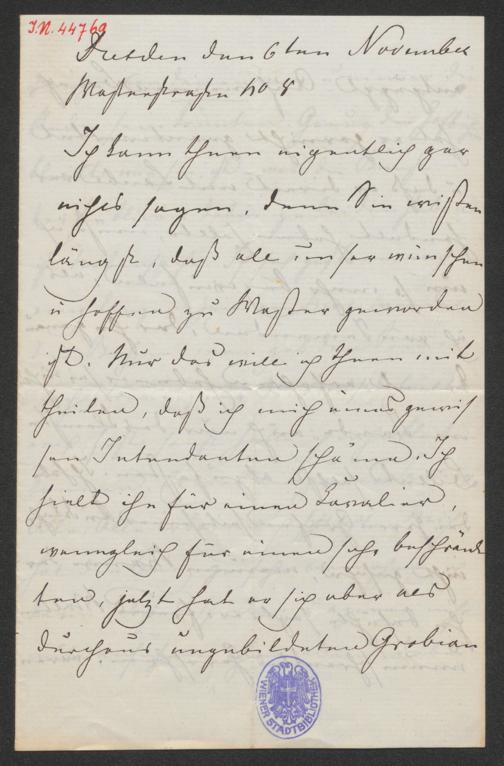 J.N. 44769
Dresden den 6ten November
Wasserstrasse no 8
Ich kann Ihnen eigentlich gar
nichts sagen, denn Sie wissen
längst, daß all unser wünschen
u hoffen zu Wasser geworden
ist. Nur das will ich Ihnen mit
theilen, daß ich mich eines gewis
sen Intendanten schäme. Ich
hielt ihn für einen Cavalier,
wenngleich für einen sehr beschränk
ten, jetzt hat er sich aber als
durchaus ungebildeten Grobian
WIENER STADTBIBLIOTHEK